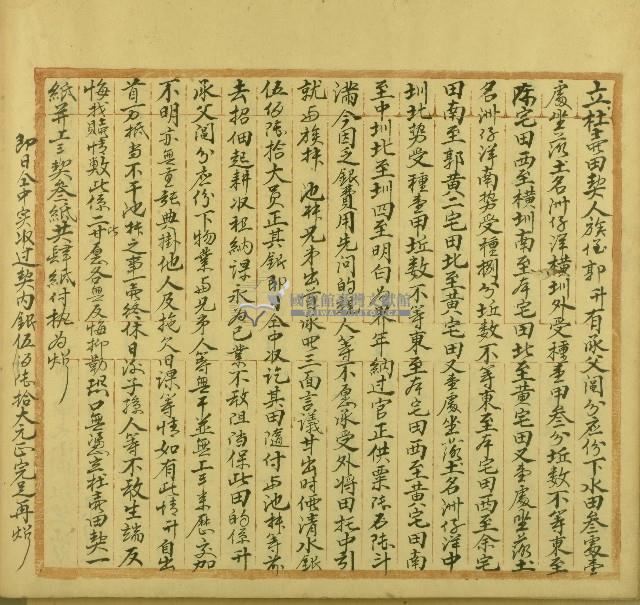 立杜賣田契人族侄郭升有承父鬮分應份下水田叁處壹
處坐落土名洲仔洋橫圳外受種壹甲叁分坵數不等東至
陈宅田西至橫圳南至本宅田北至黃宅田又壹處坐落土
名洲仔洋南勢受種捌分坵數不等東至本宅田西至余宅
田南至郭黃二宅田北至黃宅田又壹處坐落土名洲仔洋中
圳北勢受種壹甲坵數不等東至本宅田西至黃宅田南
至中圳北至圳四至明白為界年納过官正供粟陆石陆斗
滿今因乏銀費用先问的親人等不愿承受外將田托中引
就与族叔 池叔兄弟出頭承吧三面言議甘出時價清水銀
伍佰陆拾大员正其銀即日仝中収讫其田隨付与池叔等前
去招佃起耕収租纳課永為己業不敢阻当保此田的係升
承父阄分应份下物業与兄弟人等無干並無上手来歷交加
不明亦無重张典掛他人及拖欠旧課等情如有此情升自出
首一力抵当不干池叔之事一賣終休日後子孫人等不敢生端反
悔找贖情弊此係二比甘愿各無反悔抑勒恐口無憑立杜賣田契一
紙并上手契叁紙共肆紙付执為炤
即日仝中实収过契内銀伍佰陆拾大元正完足再炤
國史館臺灣文獻館
TAIWAN HISTORICA